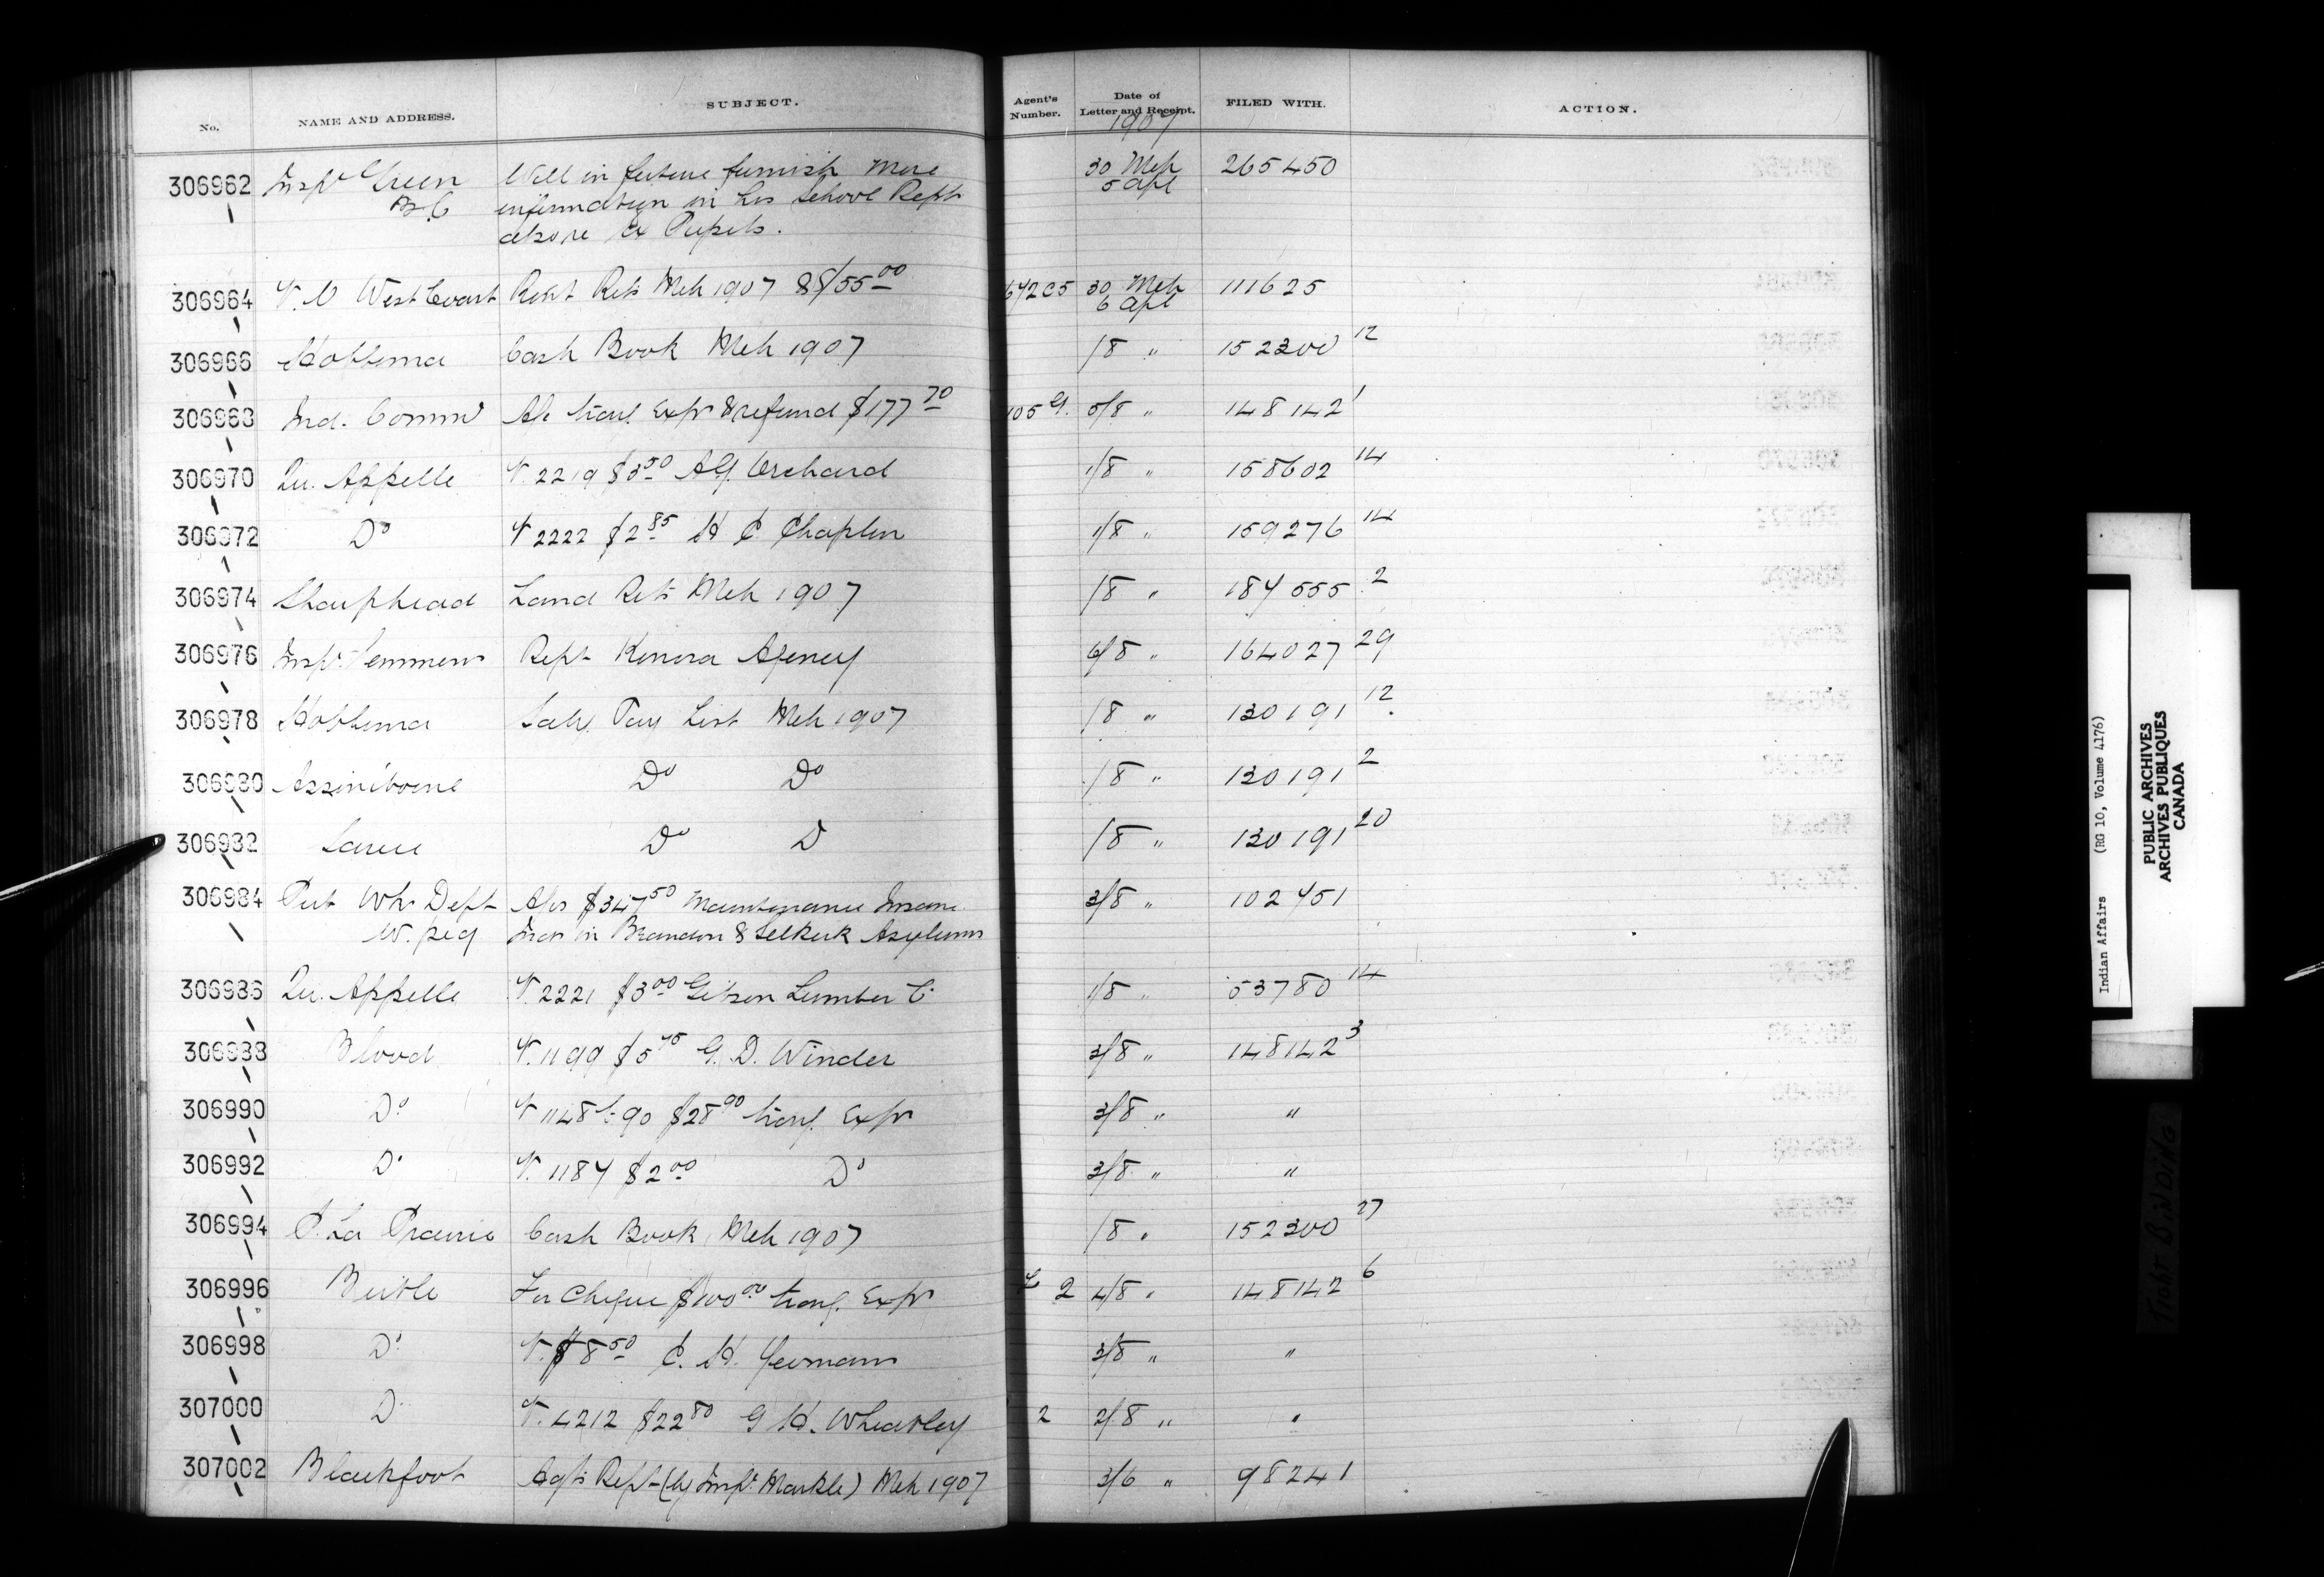 No. NAME AND ADDRESS. SUBJECT. Agent's Number. Date of Letter and Receipt. FILED WITH. ACTION.
1907
306962 Inspr Green Will in future furnish more 30 Mch 265450
B.C information in his School Rept 5 Apl
above ex Pupils.
306964 V. V West Coast Rept Rets Mch 1907 642 30 Mch 111625
6 Apl
306966 Hobbema Cash Book Mch 1907 /8 " 152300 12
306968 Ind. Commr & refund $177 70 105 G. 5/8 " 148142 1
306970 Qu. Appelle V. 2219 $3 50 A G. Orchard 1/8 " 158602 14
306972 Do V 2222 $2 85 H C Chaplin 1/8 " 159276 14
306974 Sharphead Land Rets Mch 1907 /8 " 184555 2
306976 Insp. Semmens Rept Kenora Agency 6/8 " 164027 29
306978 Hobbema Saly. Pay List Mch 1907 /8 " 130191 12
306980 Assiniboine Do Do /8 " 130191 2
306982 Sarcee Do D /8 " 130191 20
306984 Pub Wks Dept $347 50 Maintenance Insane 3/8 " 102451
W. peg Inds in Brandon & Selkirk Asylums
306986 Qu. Appelle V. 2221 $3 00 Gibson Lumber C. 1/8 " 53780 14
306988 Blood V. 1199 $5 G. D. Winder 3/8 " 148142 3
306990 Do V 1148 90 $28 90 Trav. Exp 3/8 " "
306992 Do V. 1184 $2 00 Do 3/8 " "
306994 P. La Prairie Cash Book Mch 1907 /8 " 152300 27
306996 Birtle For Cheque $100 00 Trav. Exp 2 4/8 " 148142 6
306998 Do V. $8 50 C. H. Yeomans 3/8 " "
307000 D V. 4212 $22 80 G H. Wheatley 2 2/8 " "
307002 Blackfoot Agts Rept (by Inspr Markle) Mch 1907 3/6 " 98241
Indian Affairs (RG 10, Volume 4176)
PUBLIC ARCHIVES
ARCHIVES PUBLIQUES
CANADA
Tight Binding